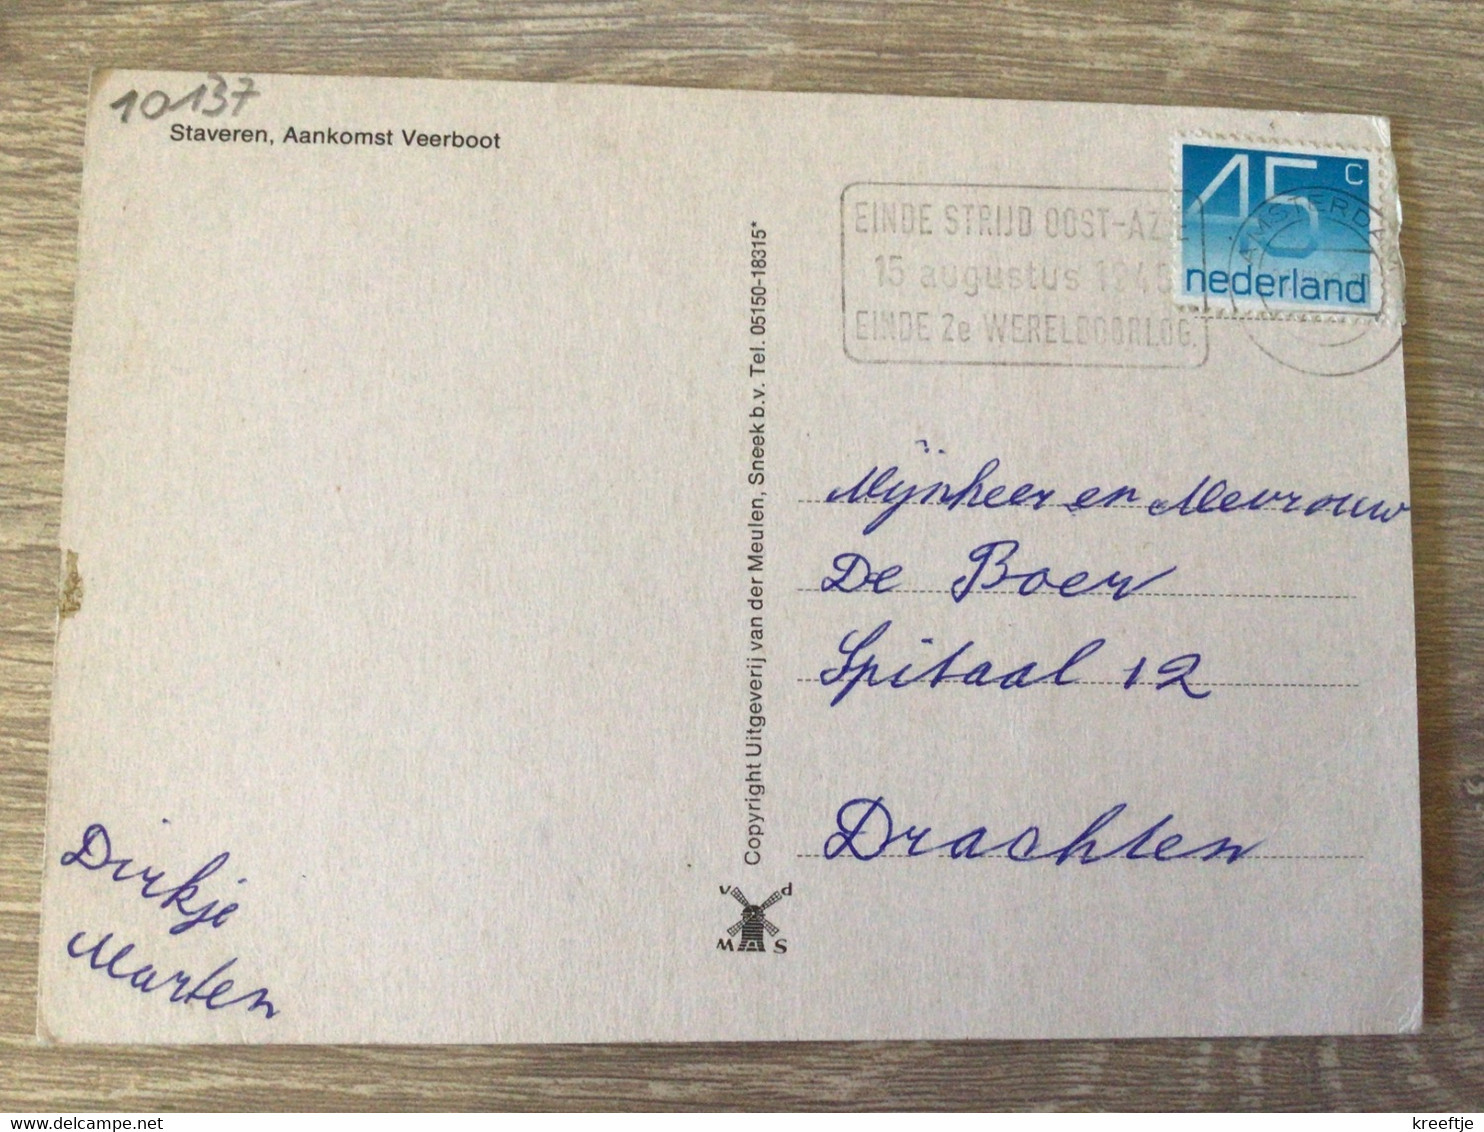 10137
Staveren, Aankomst Veerboot
45 c
nederland
AMSTERDAM
EINDE STRIJD OOST-AZIE
15 augustus 1945
EINDE 2e WERELDOORLOG.
Copyright Uitgeverij van der Meulen, Sneek b.v. Tel. 05150-18315*
Mijnheer en Mevrouw
De Boer
Spitaal 12
Drachten
Dirkje
Marten
v d
M S
delcampe.net
kreeftje